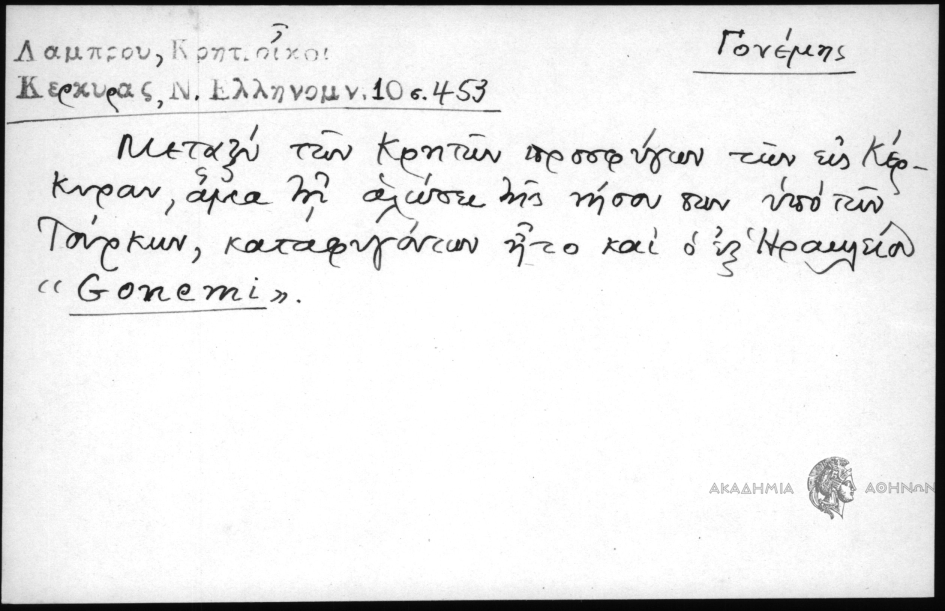 Γονέμης
Λαμπρου, Κρητ. οἶκοι
Κερκυρας, Ν. Ελληνομν. 10 σ. 453
Μεταξύ τῶν Κρητῶν προσφύγων τῶν εἰς Κέρ-
κυραν, ἅμα τῇ ἁλώσει τῆς νήσου των ὑπό τῶν
Τούρκων, καταφυγόντων ἦτο καί ὁ ἐξ Ἡρακλείου
"Gonemi".
ΑΚΑΔΗΜΙΑ ΑΘΗΝΩΝ